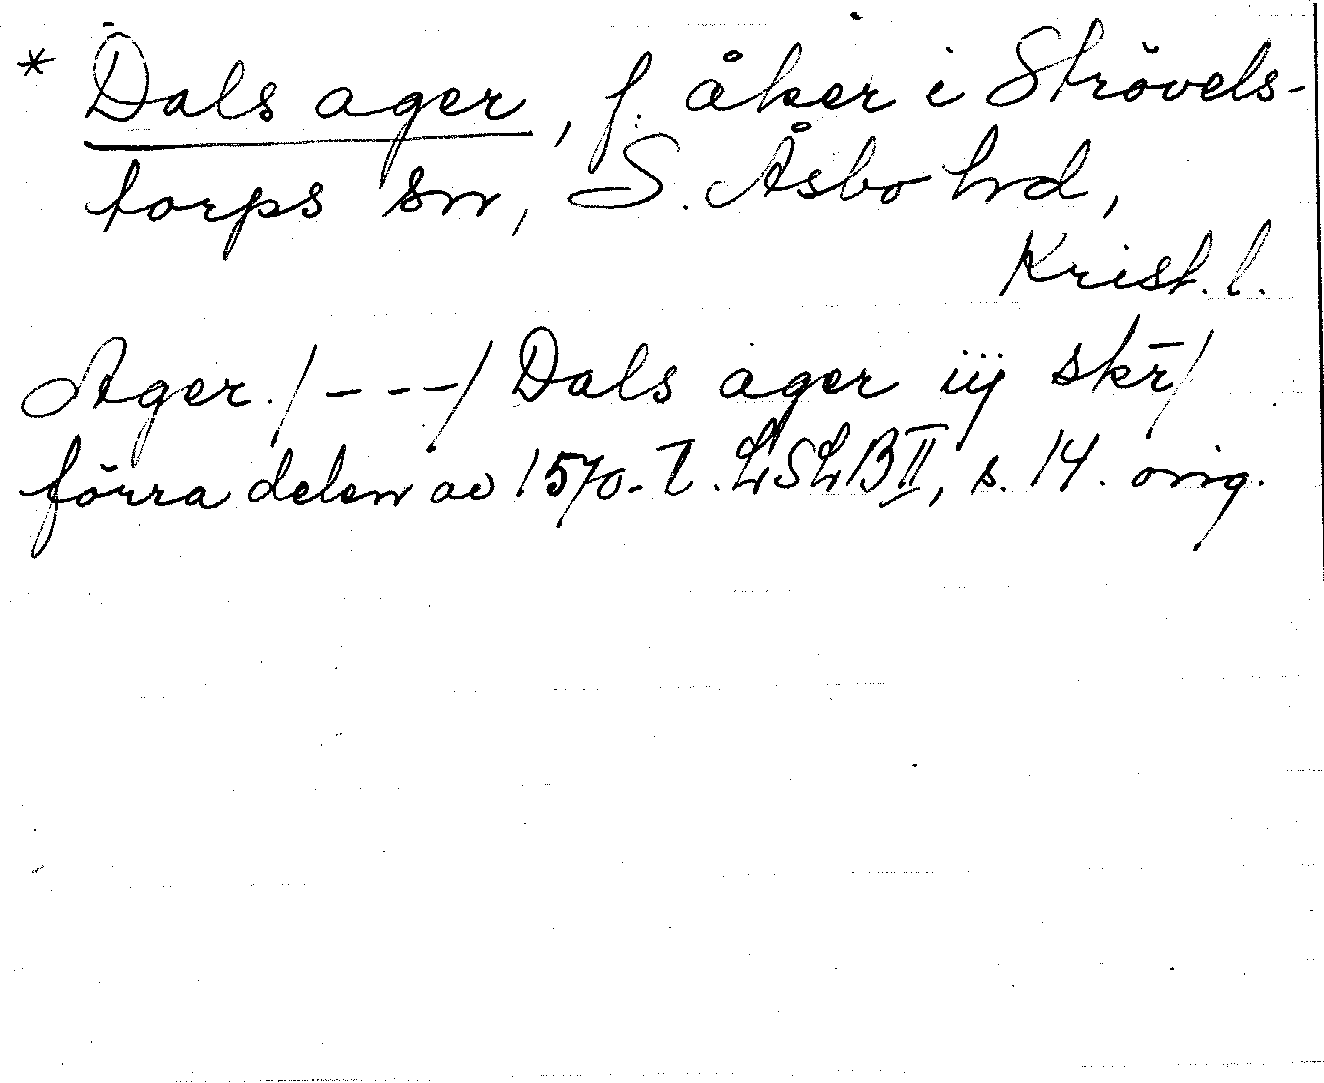 * Dals ager, f. åker i Strövels-
torps sn, S. Åsbo hrd,
Krist. l.
Ager. / - - - / Dals ager iij skr̄ /
förra delen av 1570-t. LSLB II, s. 14. orig.